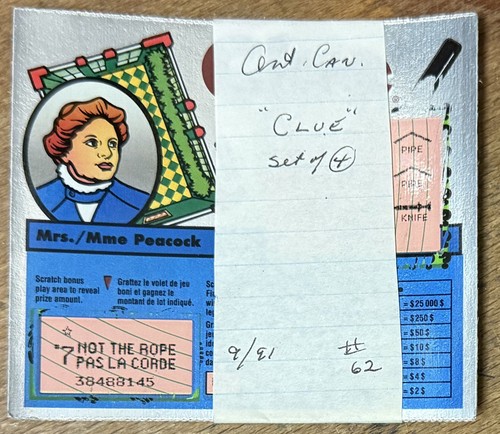 Ont. CAN.
"CLUE"
set of 4
9/91 #
62
Mrs./Mme Peacock
Scratch bonus
play area to reveal
prize amount.
Grattez le volet de jeu
boni et gagnez le
montant de lot indiqué.
7 NOT THE ROPE
PAS LA CORDE
38488145
PIPE
PIPE
KNIFE
= $25 000 $
= $250 $
= $50 $
= $10 $
= $8 $
= $4 $
= $2 $